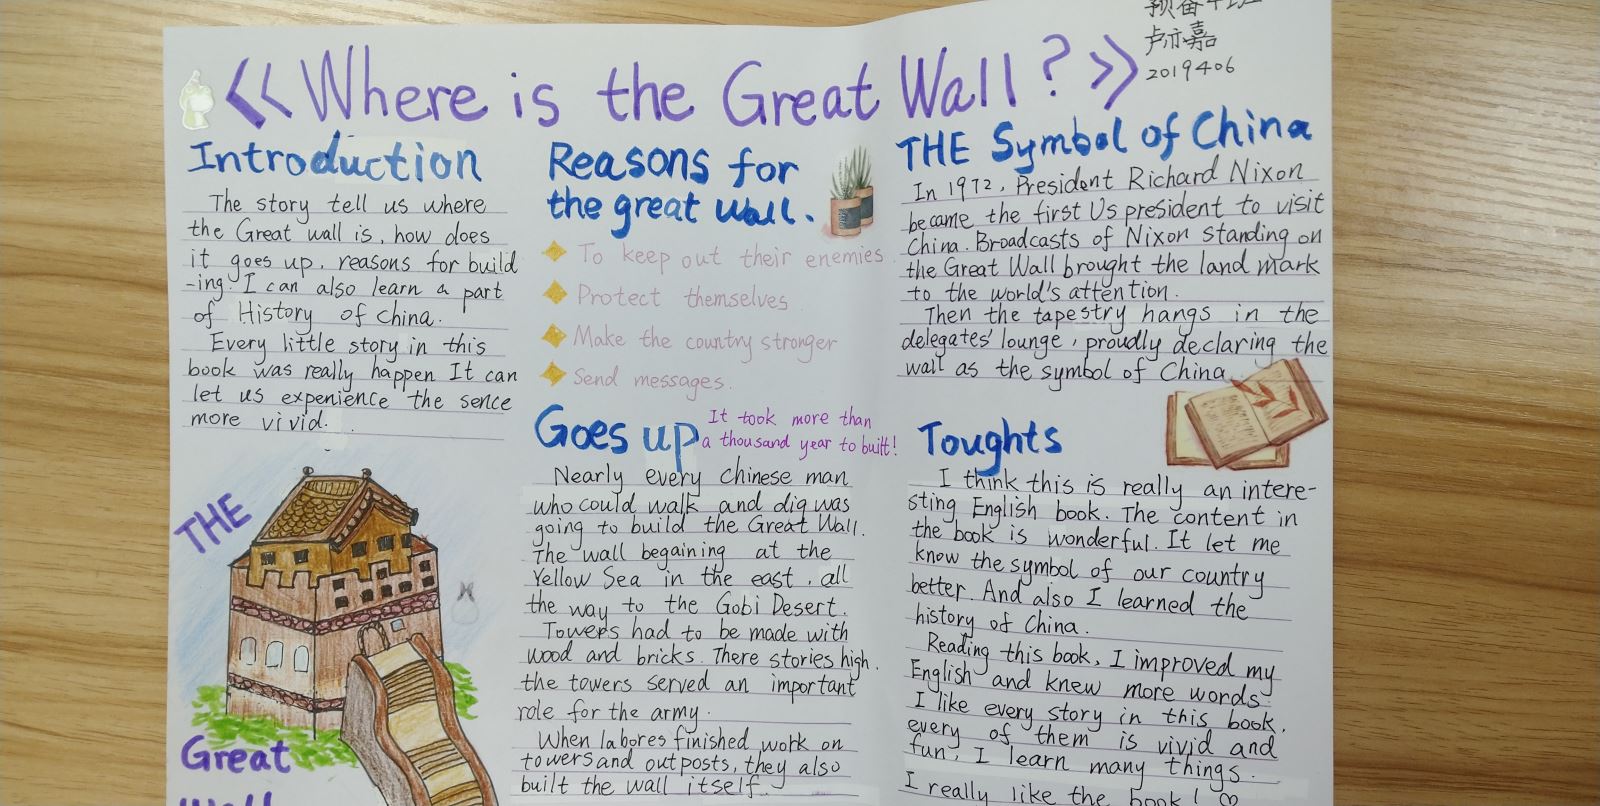 预备
卢亦嘉
2019406
《Where is the Great Wall?》
Introduction
The story tell us where
the Great wall is, how does
it goes up, reasons for build
-ing. I can also learn a part
of History of China.
Every little story in this
book was really happen It can
let us expenience the sence
more vivid.
THE
Great
Wall
Reasons for
the great wall.
To keep out their enemies.
Protect themselves.
Make the country stronger
Send messages.
Goes up
It took more than
a thousand year to built!
Nearly every Chinese man
who could walk and dig was
going to build the Great Wall.
The wall begaining at the
Yellow Sea in the east, all
the way to the Gobi Desert.
Towers had to be made with
wood and bricks. There stories high.
the towers served an important
role for the army.
When labores finished work on
towers and outposts, they also
built the wall itself.
THE Symbol of China
In 1972, President Richard Nixon
became the first Us president to visit
China. Broadcasts of Nixon standing on
the Great Wall brought the land mark
to the world's attention.
Then the tapestry hangs in the
delegates' lounge, proudly declaring the
wall as the symbol of China.
Toughts
I think this is really an intere-
sting English book. The content in
the book is wonderful. It let me
know the symbol of our country
better. And also I learned the
history of China.
Reading this book, I improved my
English and knew more words.
I like every story in this book,
every of them is vivid and
fun, I learn many things.
I really like the book! ♡